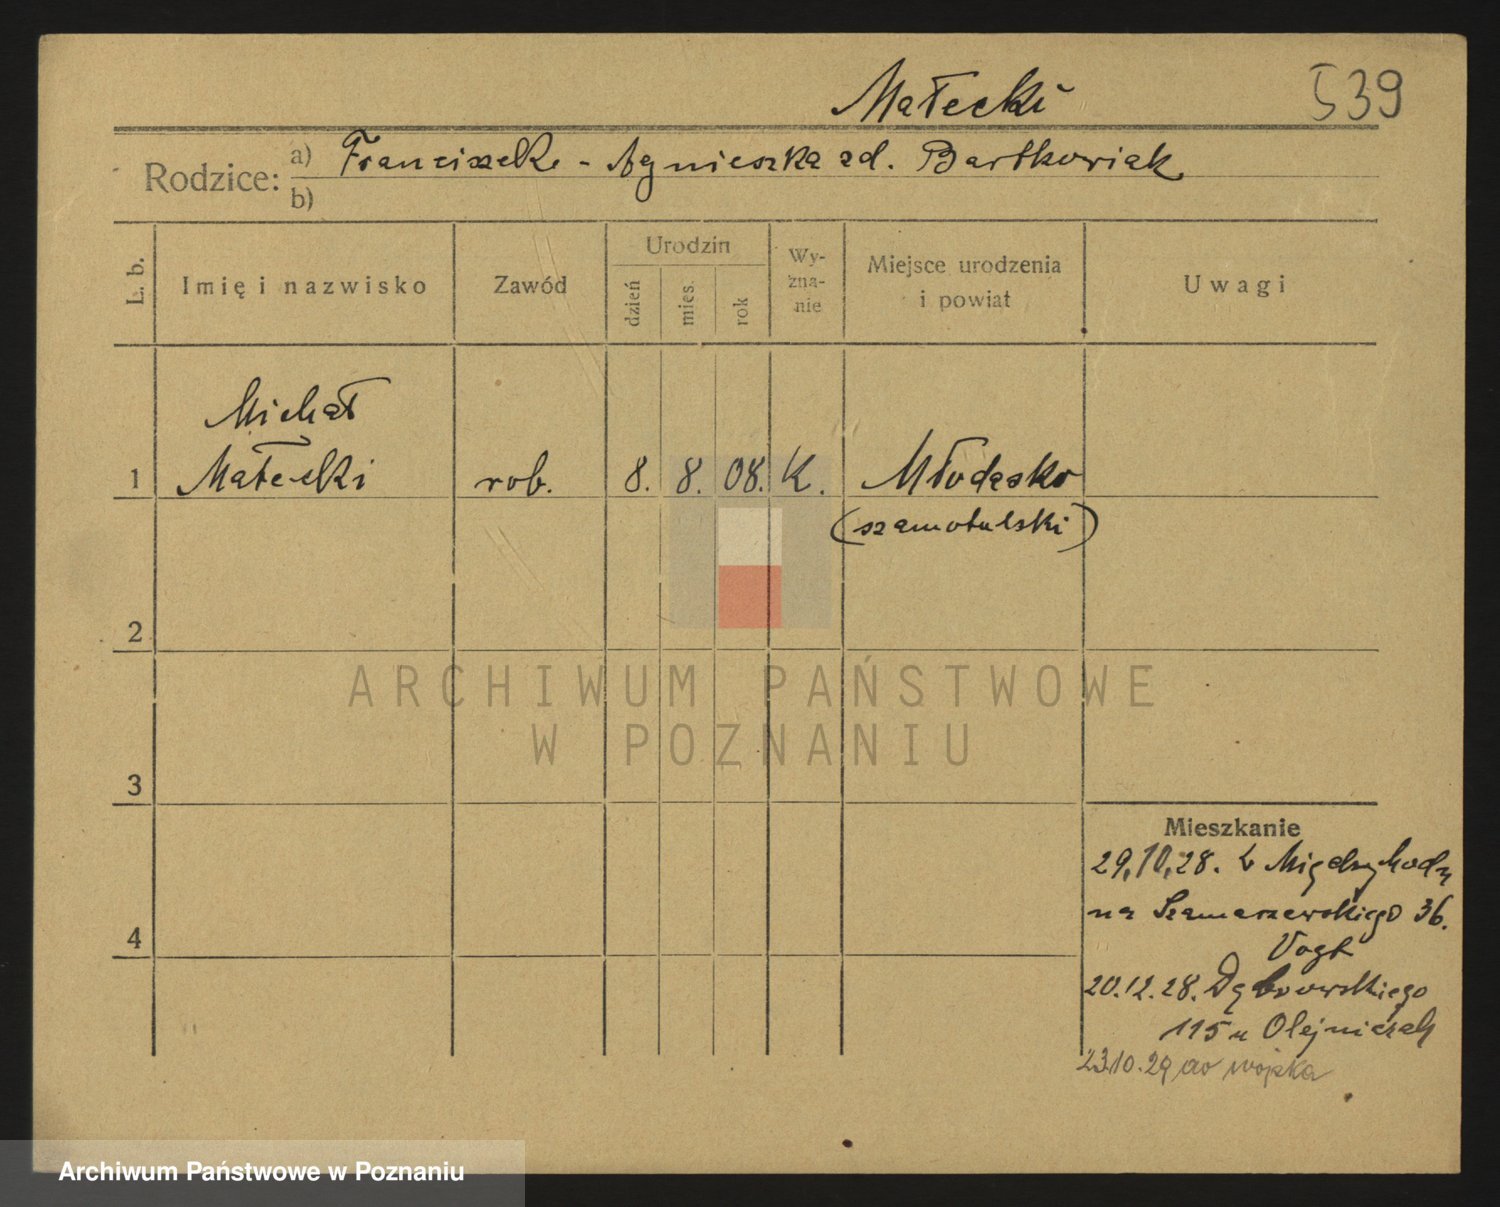 Małecki
539
Rodzice:
a) Franciszek - Agnieszka zd. Bartkowiak
b)
L. b.
Imię i nazwisko
Zawód
Urodzin
dzień
mies.
rok
Wy-
zna-
nie
Miejsce urodzenia
i powiat
Uwagi
Michał
1 Małecki rob. 8. 8. 08. K. Młodasko
(szamotulski)
2
ARCHIWUM PAŃSTWOWE
W POZNANIU
3
Mieszkanie
29.10.28. z Międzychodu
na Szamarzewskiego 36.
Vogt
4
20.12.28. Dąbrowskiego
115 u Olejniczak
23.10.29 do wojska
Archiwum Państwowe w Poznaniu